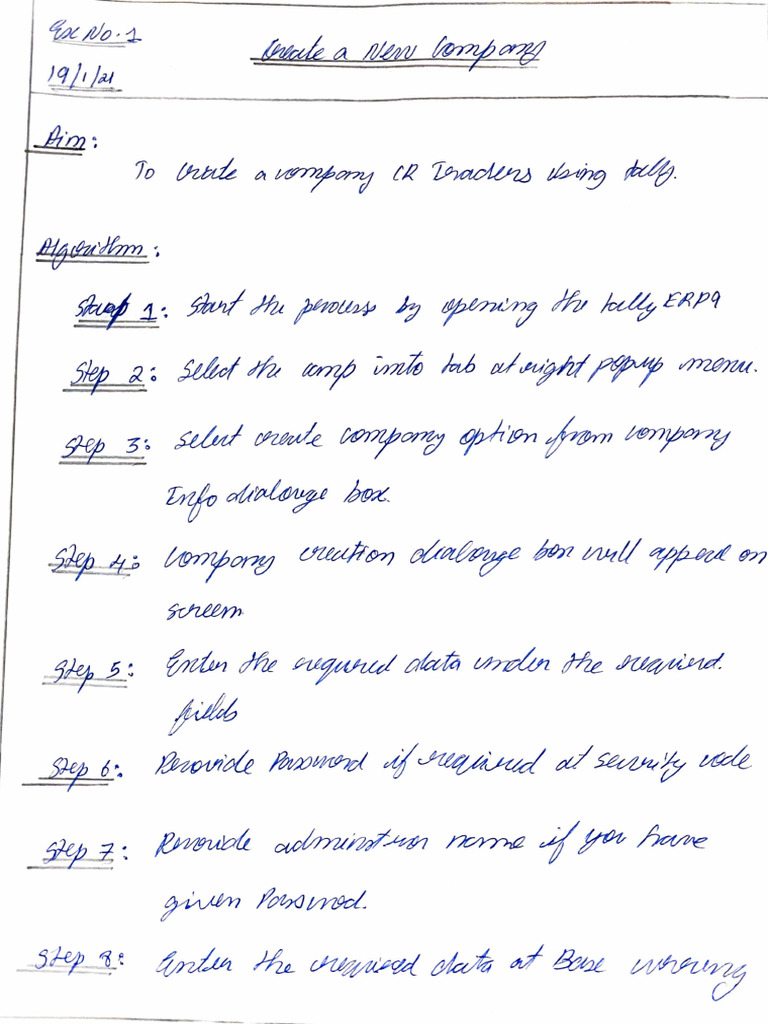 Ex No. 1
Create a New Company
19/1/21
Aim:
To create a company CR Traders using tally.
Algorithm:
Step 1: Start the process by opening the tally ERP9
Step 2: Select the comp into tab at right popup menu.
Step 3: Select create company option from company
Info dialouge box.
Step 4: Company creation dialouge box will append on
screem
Step 5: Enter the required data under the required.
fields
Step 6: Provide Password if required at security code
Step 7: Provide adminstror name if you have
given Password.
Step 8: Enter the required data at Base